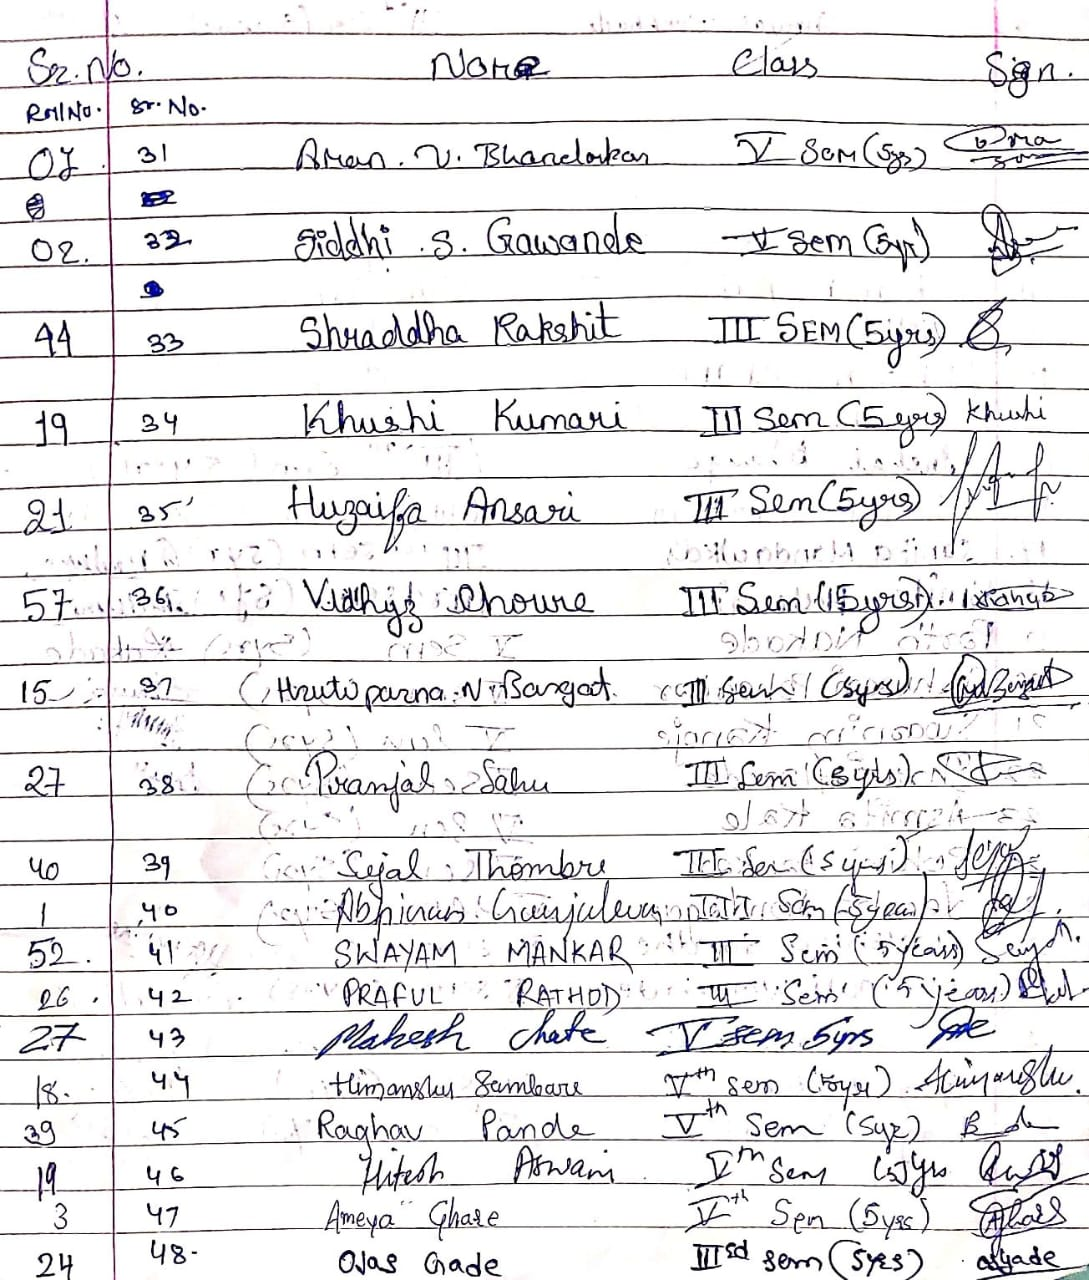 Sr. No. Name Class Sign.
Roll No. Sr. No.
07 31 Aman . V. Bhandarkar V Sem (5yrs)
02. 32 Siddhi . S. Gawande V Sem (5yr)
44 33 Shraddha Rakshit III SEM (5yrs)
19 34 Khushi Kumari III Sem (5 yrs) Khushi
21 35 Huzaifa Ansari III Sem (5yrs)
57 36. III Sem (5yrs)
15 37 Hrutuparna . N. Bargat. III (5yrs)
27 38 Pranjal Sahu III Sem (5yrs)
40 39 Sejal Thombre III Sem (5 years)
1 40 Abhinav III Sem (5years)
52. 41 SWAYAM MANKAR III Sem (5 years)
26. 42 PRAFUL RATHOD III Sem (5 years)
27 43 Mahesh Chate V sem 5yrs
18. 44 Himanshu Sambare Vth sem (5yrs) Himanshu.
39 45 Raghav Pande Vth Sem (5yr)
19 46 Hitesh Aswani Vth Sem (5)yrs
3 47 Ameya Ghare Vth Sem (5yrs)
24 48. Ojas Gade IIIrd sem (5yrs) ogade